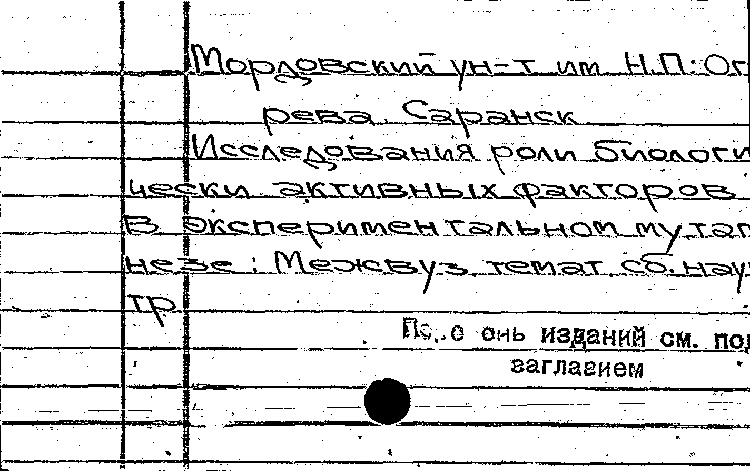 Мордовский ун-т им Н.П. Ог
рева. Саранск
Исследования роли биологи
чески активных факторов
в экспериментальном мутаг
незе: Межвуз. темат. сб. нау
тр
изданий см. под
заглавием